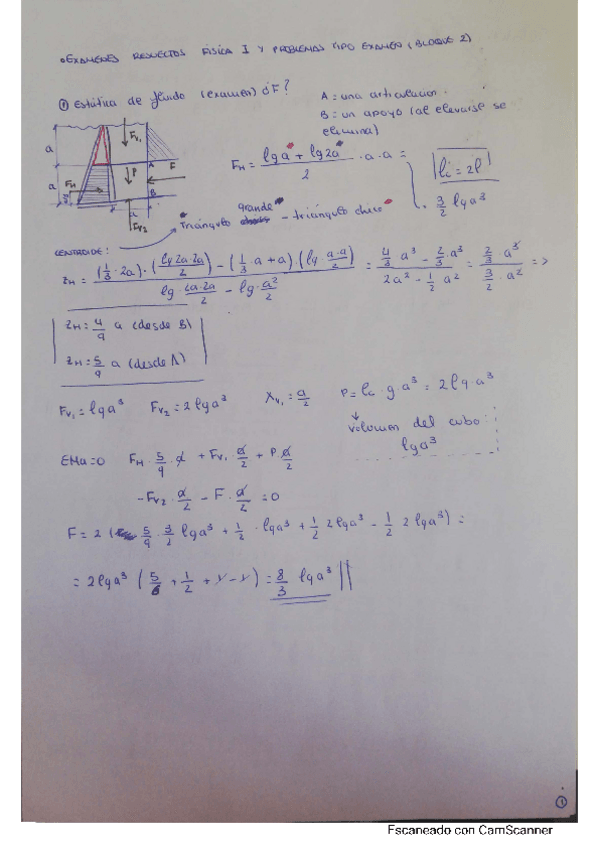 • EXAMENES RESUELTOS FÍSICA I Y PROBLEMAS TIPO EXAMEN (BLOQUE 2)
① Estática de fluido (examen) ¿F?
A = una articulación.
B = un apoyo (al elevarse se elimina)
a
a
F_H
F_V1
P
A
F
B
F_V2
F_H = (ρga + ρg2a)/2 · a · a = 3/2 ρga³
ρc = 2ρ
"Triángulo grande" - triángulo chico"
CENTROIDE:
z_H = ((1/3 · 2a) · (ρg 2a·2a/2) - (1/3 · a + a) · (ρg · a·a/2)) / (ρg · 2a·2a/2 - ρg · a²/2) = (4/3 a³ - 2/3 · a³)/(2a² - 1/2 a²) = (2/3 a³)/(3/2 · a²) = =>
z_H = 4/9 a (desde B)
z_H = 5/9 a (desde A)
F_V1 = ρga³ F_V2 = 2ρga³ X_V1 = a/2 P = ρc · g · a³ = 2ρg·a³
volumen del cubo
ρga³
ΣMa=0 F_H · 5/9 · a + F_V1 a/2 + P a/2
- F_V2 · a/2 - F · a/2 = 0
F = 2 ( 5/9 · 3/2 ρga³ + 1/2 · ρga³ + 1/2 2ρga³ - 1/2 2ρga³) =
= 2ρga³ (5/6 + 1/2 + 1 - 1) = 8/3 ρga³
①
Escaneado con CamScanner